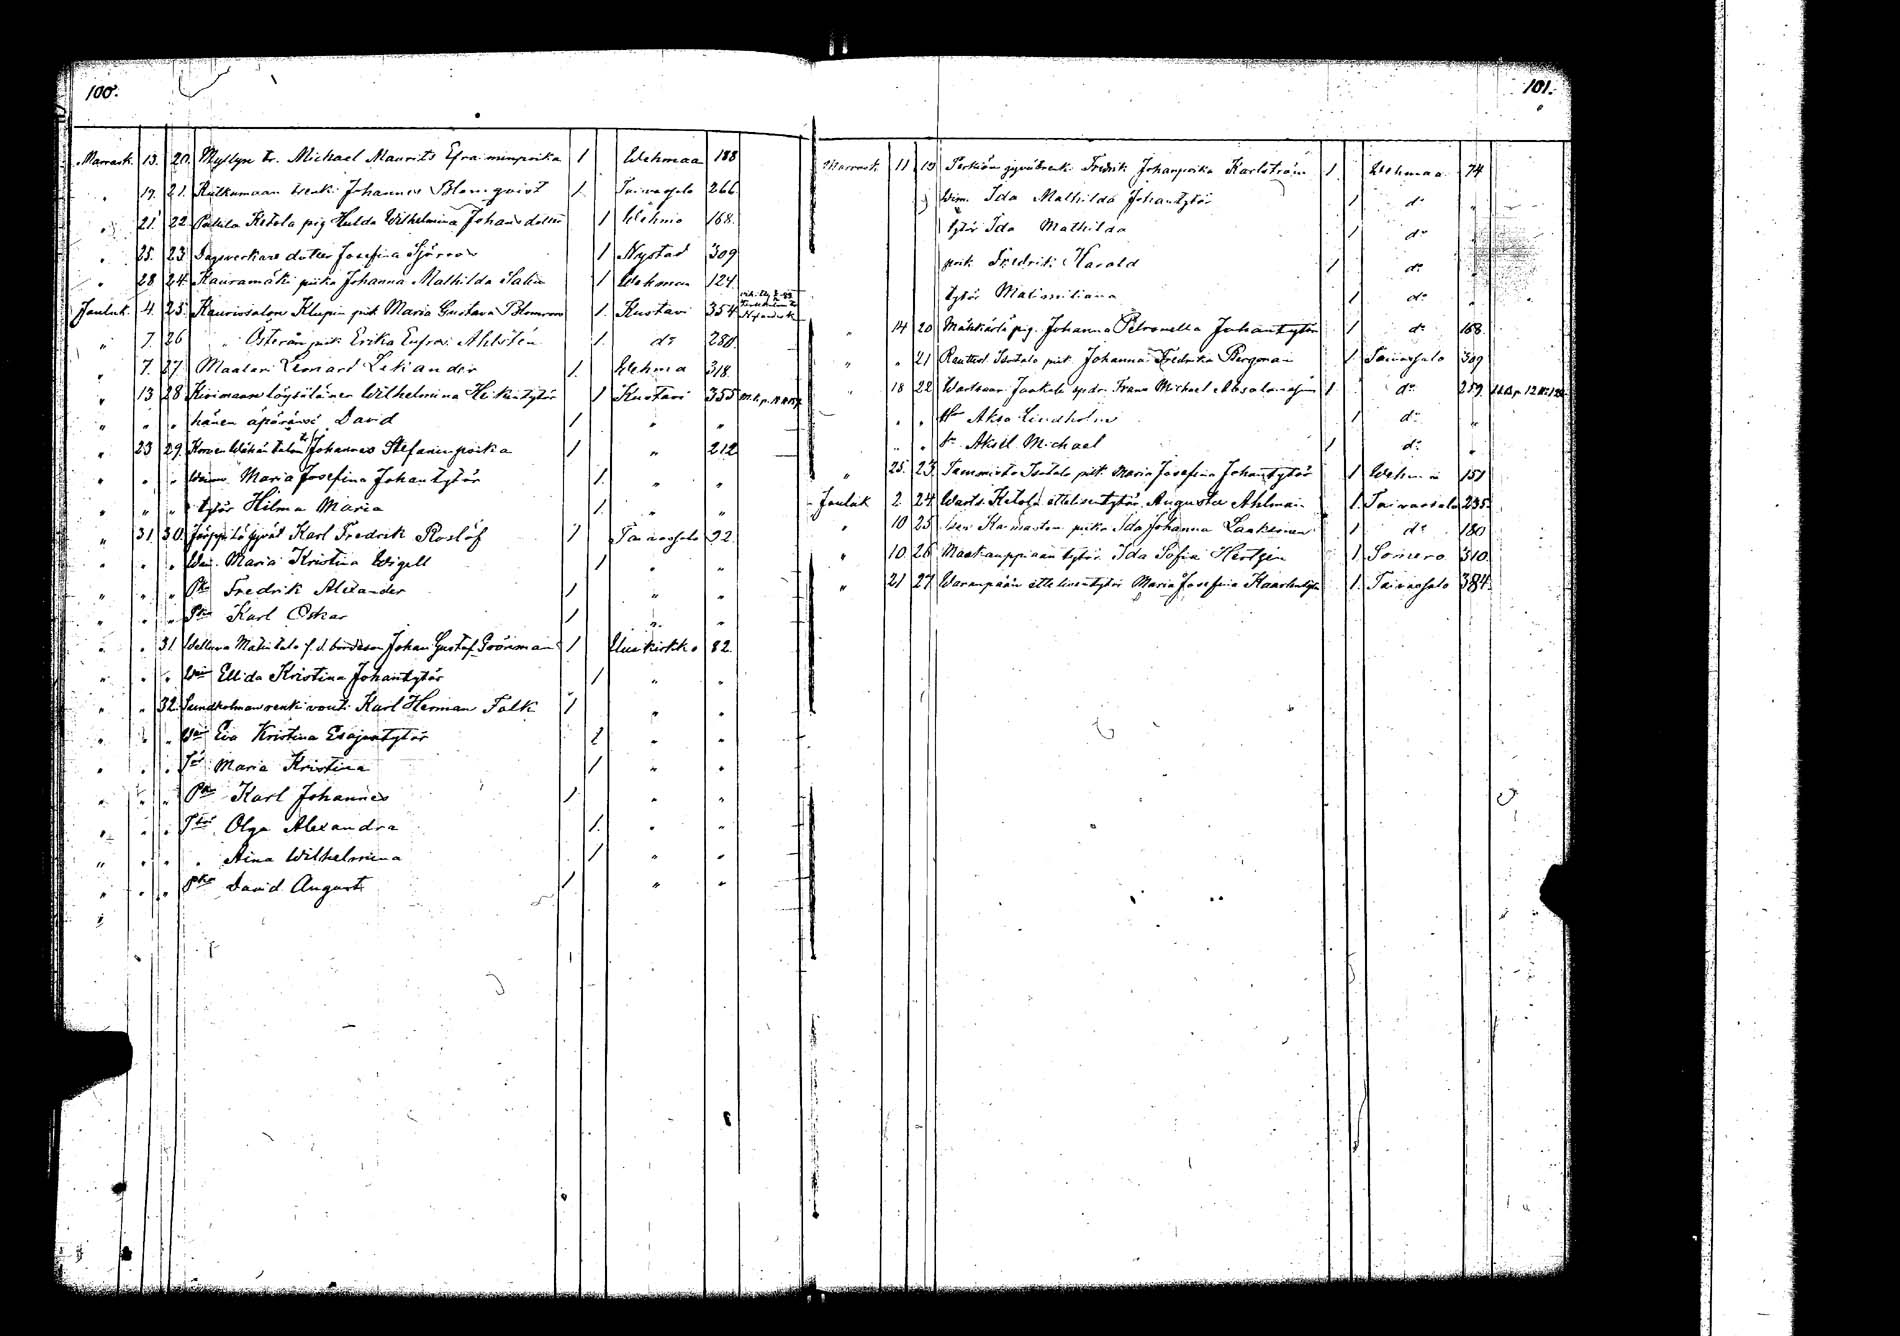 100.
Marrask. 13. 20. Myllyn tr. Michael Maurits Efraiminpoika 1 Wehmaa 188
" 19. 21. Kulkumaan renki Johannes Blomqvist 1. Taivasalo 266
" 21. 22. Pukila Ketola pig Hulda Wilhelmina Johans dotter 1 Wehmo 168.
" 25. 23 Dagsverkare dotter Josefina Sjöroos 1 Nystad 309
" 28 24. Kauramäki piika Johanna Mathilda Salin 1 Wehmaa 124.
Jouluk. 4. 25. Kaurissalon Klupin piik Maria Gustava Blomroos 1. Kustavi 354
" 7. 26 " Österån piik Erika Eufros. Ahlstén 1. do 280.
" 7. 27 Maalari Leonard Lekander 1. Wehma 318.
" 13 28 Kivimaan löysöläinen Wilhelmina Heikintytär 1 Kustavi 355
" " " hänen äpäränsä David 1 " "
" 23 29. Johannes Stefaninpoika 1 " 212
" " " Waimo Maria Josefina Johantytär 1. " "
" " " tytär Hilma Maria 1. " "
" 31. 30. Karl Fredrik Roslöf 1 Taivassalo 92.
" " " Wm. Maria Kristina Wigell 1 " "
" " " Pka Fredrik Alexander 1 " "
" " " Pka Karl Oskar 1 " "
" " 31 Wellua Matintalo f.d. bondeson Johan Gustaf Grönman 1 Uusikirkko 82.
" " " Wm Ellida Kristina Johantytär 1 " "
" " 32. Sundholman renki vouti Karl Herman Falk 1 " "
" " " Wm Eva Kristina Esajantytär 1 " "
" " " Tr Maria Kristina 1 " "
" " " Pka Karl Johannes 1 " "
" " " Ttär Olga Alexandra 1. " "
" " " " Aina Wilhelmina 1 " "
" " " Pka David August 1 " "
101.
Marrask 11 19 Fredrik Johanpoika Karlström 1 Wehmaa 74
Wm. Ida Mathilda Johantytär 1 do "
tytär Ida Mathilda 1 do "
poik Fredrik Harald 1 do "
tytär Maximiliana 1 do "
" 14 20 Mähkärlä pig. Johanna Petronella Johantytär 1 do 168.
" " 21 Isotalo piik. Johanna Fredrika Bergman 1 Taivassalo 309
" 18 22 Wartsaari Frans Michael Absalominpoika 1 do 259.
" " Hu Aksa Lindholm 1 do "
" " Sn Aksel Michael 1 do "
" 25. 23. Tammisto Isotalo piik Maria Josefina Johantytär 1 Wehmaa 151
Jouluk 2. 24 Warts. Ketola ettelisentytär Augusta Ahlman 1. Taivassalo 235.
" 10 25 piika Ida Johanna Laaksonen 1 do 180
" 10. 26 Maakauppiaan tytär Ida Sofia Hertzen 1 Somero 310.
" 21 27 Waranpään ettelisentytär Maria Josefina Kaarlentytär 1. Taivassalo 384.